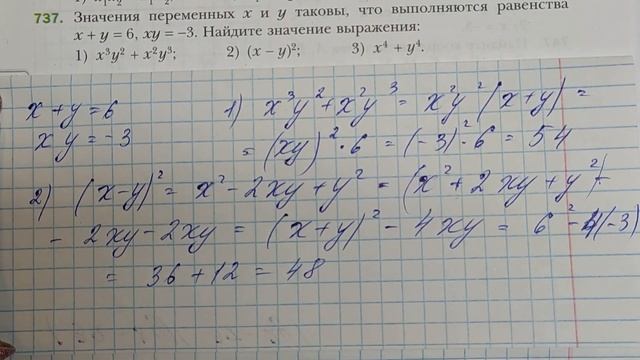 737. Значения переменных x и y таковы, что выполняются равенства
x + y = 6, xy = −3. Найдите значение выражения:
1) x³y² + x²y³; 2) (x − y)²; 3) x⁴ + y⁴.
x + y = 6
xy = −3
1) x³y² + x²y³ = x²y²(x+y) =
= (xy)² · 6 = (−3)² · 6 = 54
2) (x−y)² = x² − 2xy + y² = (x² + 2xy + y²) −
− 2xy − 2xy = (x+y)² − 4xy = 6² − 4(−3)
= 36 + 12 = 48